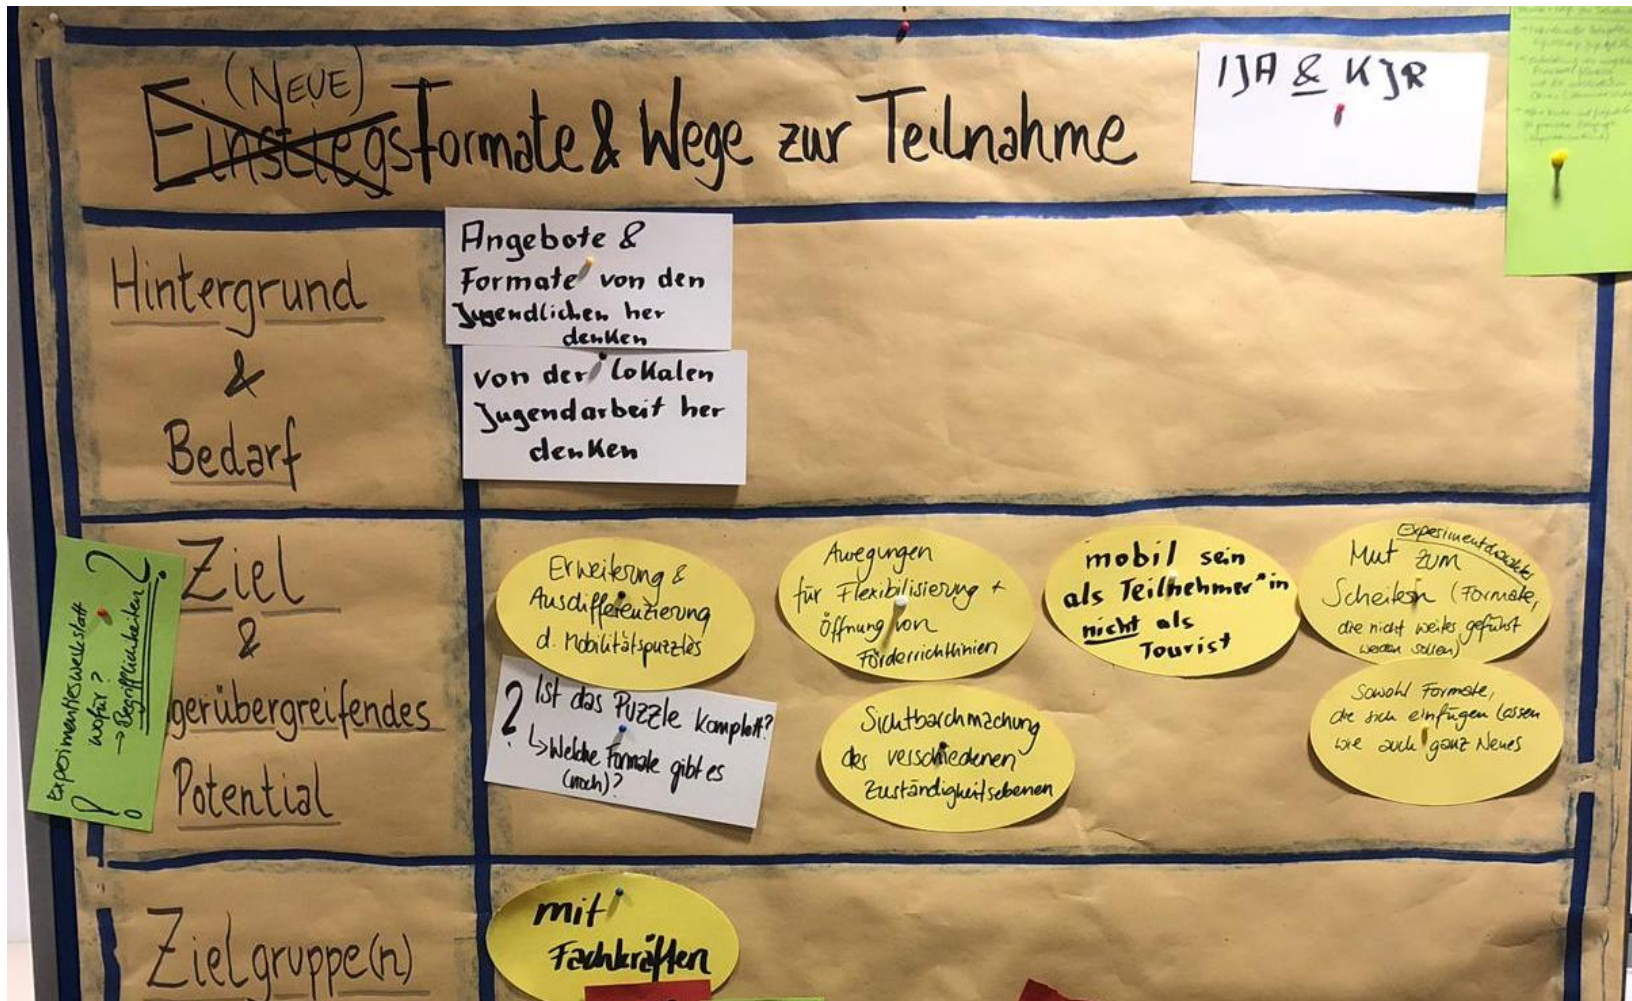 (NEUE)
Einstiegsformate & Wege zur Teilnahme
IJA & KJR
Hintergrund
&
Bedarf
Angebote &
Formate von den
Jugendlichen her
denken
von der lokalen
Jugendarbeit her
denken
Ziel
&
gerübergreifendes
Potential
Experimentierwerkstatt
wofür?
→ Begrifflichkeiten
Erweiterung &
Ausdifferenzierung
d. Mobilitätspuzzles
? Ist das Puzzle komplett?
↳ Welche Formate gibt es
(noch)?
Anregungen
für Flexibilisierung +
Öffnung von
Förderrichtlinien
Sichtbarchmachung
der verschiedenen
Zuständigkeitsebenen
mobil sein
als Teilnehmer*in
nicht als
Tourist
Mut zum
Scheitern (Formate,
die nicht weiter geführt
werden sollen)
Sowohl Formate,
die sich einfügen lassen
wie auch ganz Neues
Zielgruppe(n)
mit
Fachkräften